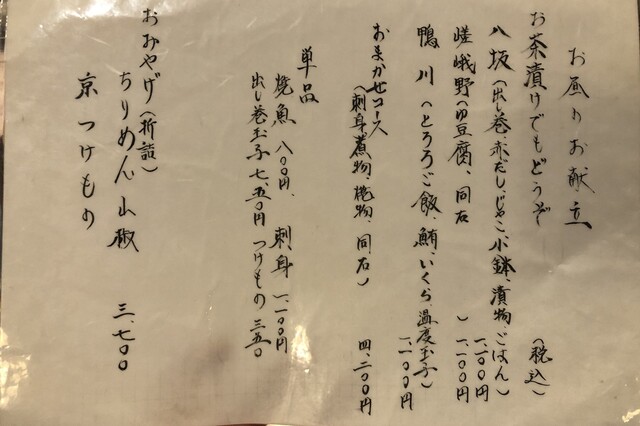 お昼のお献立
お茶漬けでもどうぞ (税込)
八坂(出し巻、赤だし、じゃこ、小鉢、漬物、ごはん) 一、一〇〇円
嵯峨野(ゆ豆腐、同右) 一、一〇〇円
鴨川(とろろご飯、鮪、いくら、温度玉子) 一、一〇〇円
おまかせコース
(刺身、煮物、焼物、同右) 四、二〇〇円
単品
焼魚 八〇〇円、刺身 一、一〇〇円
出し巻玉子 七五〇円 つけもの 三五〇
おみやげ(折詰)
ちりめん山椒
京つけもの 三、七〇〇